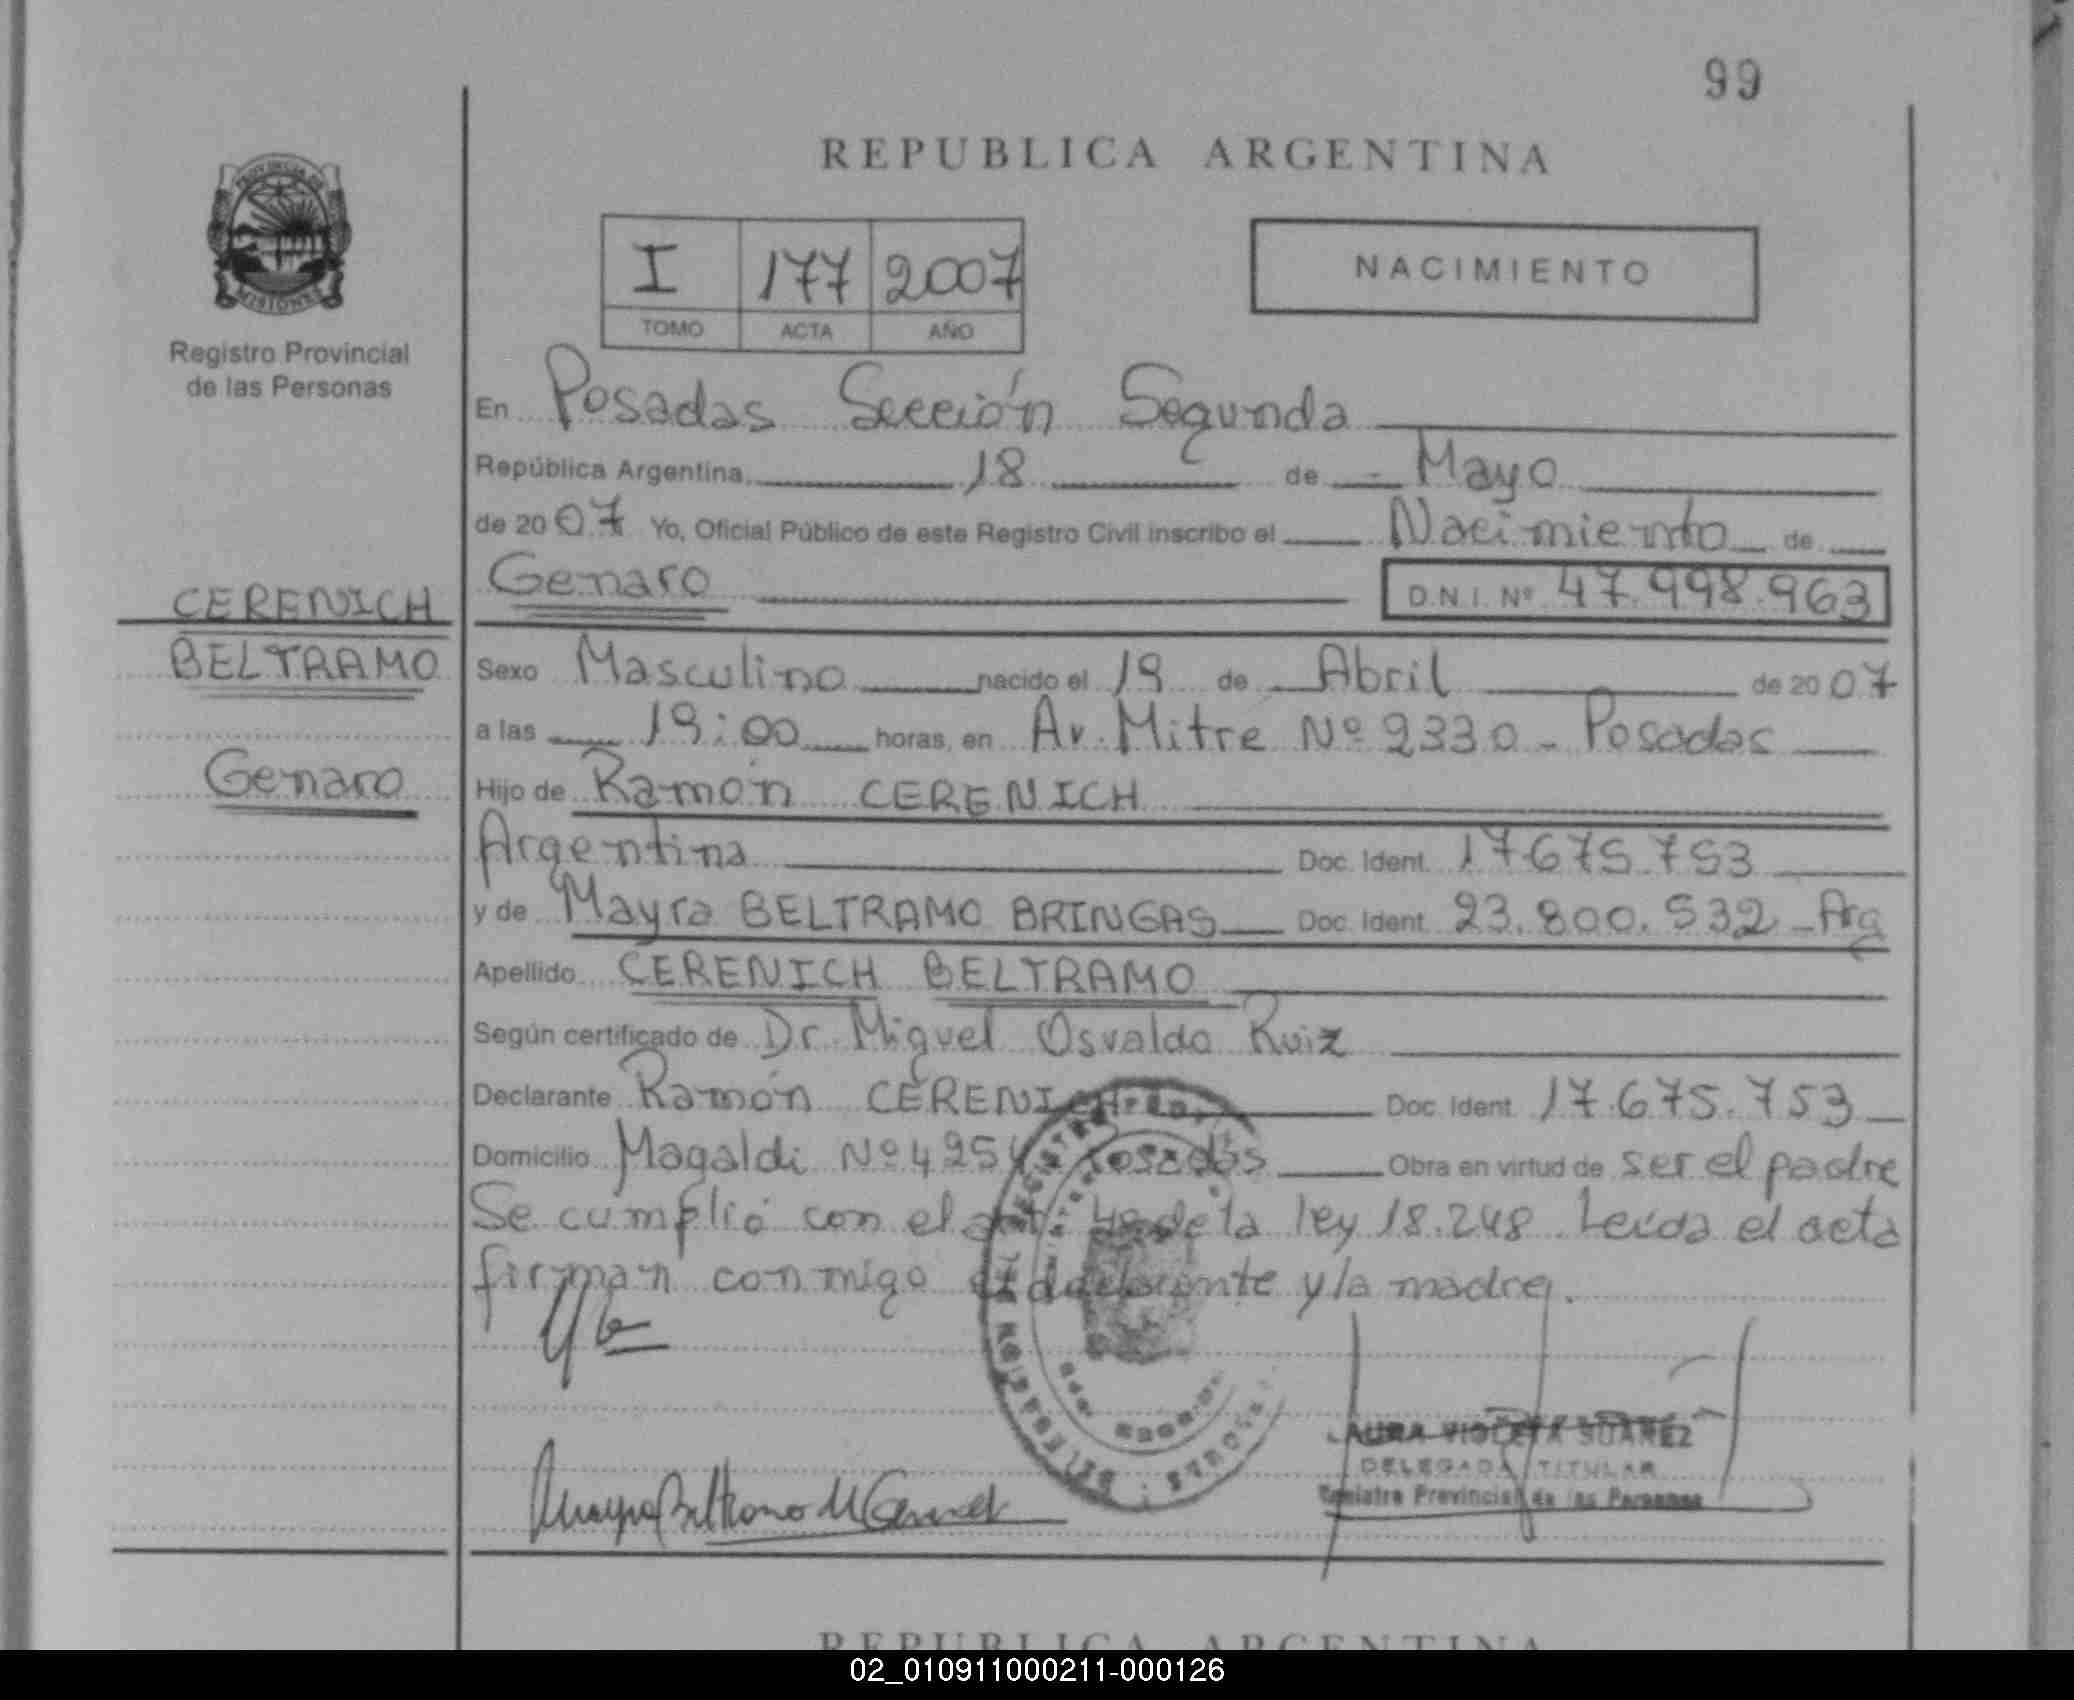 99
REPUBLICA ARGENTINA
PROVINCIA DE
MISIONES
Registro Provincial
de las Personas
I 177 2007
TOMO ACTA AÑO
NACIMIENTO
En Posadas Sección Segunda
República Argentina, 18 de Mayo
de 2007 Yo, Oficial Público de este Registro Civil inscribo el Nacimiento de
Genaro D.N.I. Nº 47.998.963
CERENICH
BELTRAMO
Genaro
Sexo Masculino nacido el 19 de Abril de 2007
a las 19:00 horas, en Av. Mitre Nº 2330 - Posadas
Hijo de Ramón CERENICH
Argentina Doc. Ident. 17.675.753
y de Mayra BELTRAMO BRINGAS Doc. Ident. 23.800.532 - Arg
Apellido CERENICH BELTRAMO
Según certificado de Dr. Miguel Osvaldo Ruiz
Declarante Ramón CERENICH Doc. Ident. 17.675.753
Domicilio Magaldi Nº 4254 Posadas Obra en virtud de ser el padre
Se cumplió con el art. de la ley 18.248. Leída el acta
firman conmigo el declarante y la madre.
LAURA VIOLETA SUAREZ
DELEGADA TITULAR
Registro Provincial de las Personas
REPUBLICA ARGENTINA
02_010911000211-000126